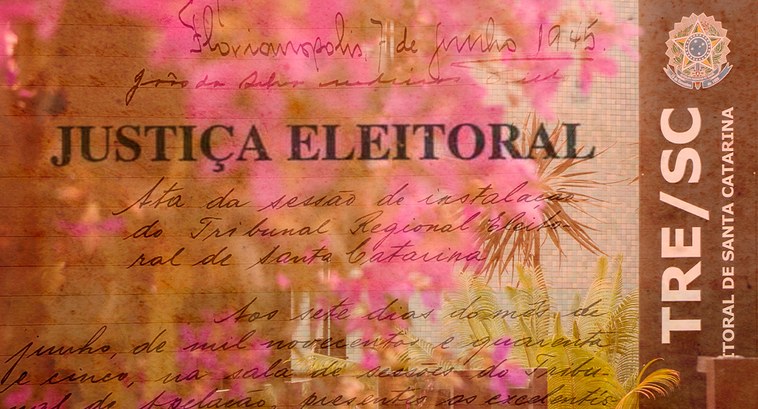 Florianopolis, 7 de Junho 1945.
João da Silva
JUSTIÇA ELEITORAL
Ata da sessão de instalação
do Tribunal Regional Eleito-
ral de Santa Catarina
Aos sete dias do mês de
junho, de mil novecentos e quarenta
e cinco, na sala de sessões do Tribu-
nal de Apelação, presentes os excelentis-
TRE/SC
TORAL DE SANTA CATARINA